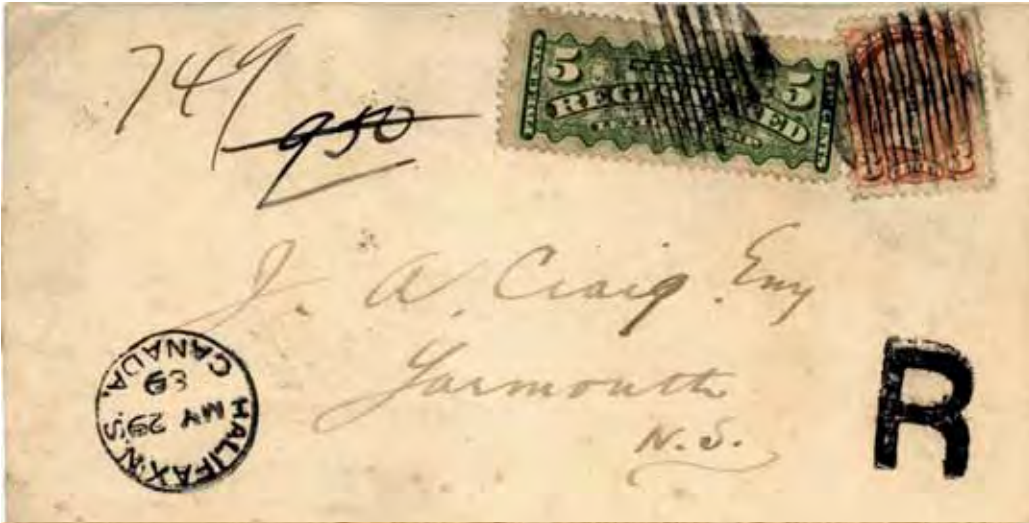 749
950
5 REGISTERED 5
3 3
J. A. Craig Esq
Yarmouth
N.S.
HALIFAX N.S.
MY 29
CANADA.
R